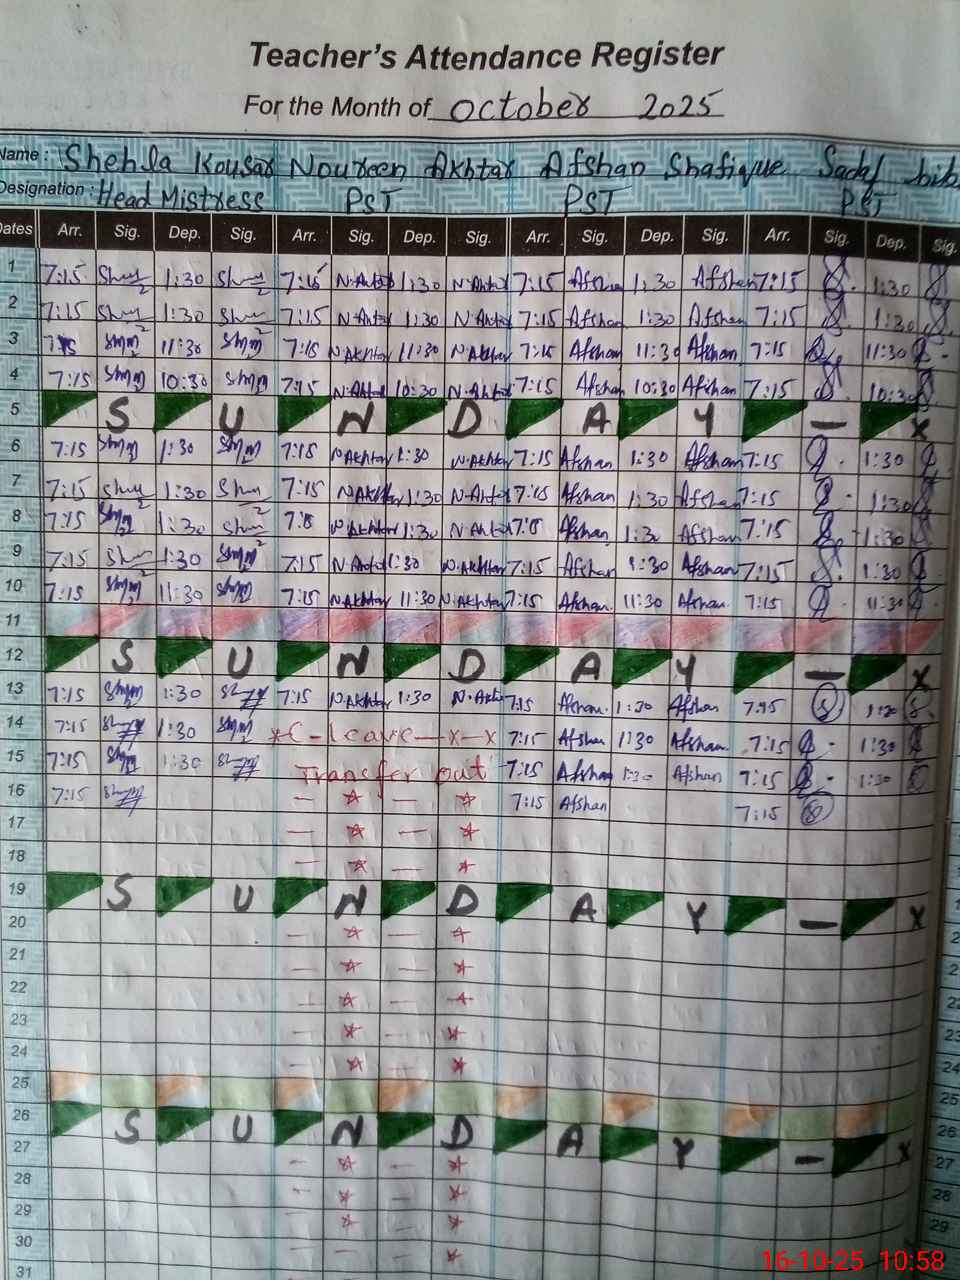 Teacher's Attendance Register
For the Month of October 2025
Name: Shehla Kousar Noureen Akhtar Afshan Shafique Sadaf bibi
Designation: Head Mistress PST PST PST
Dates Arr. Sig. Dep. Sig. Arr. Sig. Dep. Sig. Arr. Sig. Dep. Sig. Arr. Sig. Dep. Sig.
1 7:15 1:30 7:15 N.Akhtar 1:30 N.Akhtar 7:15 Afshan 1:30 Afshan 7:15 1:30
2 7:15 1:30 7:15 N.Akhtar 1:30 N.Akhtar 7:15 Afshan 1:30 Afshan 7:15 1:30
3 7:15 11:30 7:15 N.Akhtar 11:30 N.Akhtar 7:15 Afshan 11:30 Afshan 7:15 11:30
4 7:15 10:30 7:15 N.Akhtar 10:30 N.Akhtar 7:15 Afshan 10:30 Afshan 7:15 10:30
5 S U N D A Y — x
6 7:15 1:30 7:15 N.Akhtar 1:30 N.Akhtar 7:15 Afshan 1:30 Afshan 7:15 1:30
7 7:15 1:30 7:15 N.Akhtar 1:30 N.Akhtar 7:15 Afshan 1:30 Afshan 7:15 1:30
8 7:15 1:30 7:15 N.Akhtar 1:30 N.Akhtar 7:15 Afshan 1:30 Afshan 7:15 1:30
9 7:15 1:30 7:15 N.Akhtar 1:30 N.Akhtar 7:15 Afshan 1:30 Afshan 7:15 1:30
10 7:15 11:30 7:15 N.Akhtar 11:30 N.Akhtar 7:15 Afshan. 11:30 Afshan. 7:15 11:30
11
12 S U N D A Y — x
13 7:15 1:30 7:15 N.Akhtar 1:30 N.Akhtar 7:15 Afshan. 1:30 Afshan 1:30
14 7:15 1:30 x C-leave—x—x 7:15 Afshan 1:30 Afshan. 7:15 1:30
15 7:15 1:30 Transfer out 7:15 Afshan 1:30 Afshan 7:15 1:30
16 7:15 — ☆ — ☆ 7:15 Afshan 7:15
17 — ☆ — ☆
18 — ☆ ☆
19 S U N D A Y — x
20 — ☆ — ☆
21 — ☆ — ☆
22 — ☆ — ☆
23 — ☆ — ☆
24 — ☆ — ☆
25 25
26 S U N D A Y — x 26
27 — ☆ — ☆ 27
28 — ☆ — ☆ 28
29 — ☆ ☆ 29
30 — — ☆
31
16-10-25 10:58